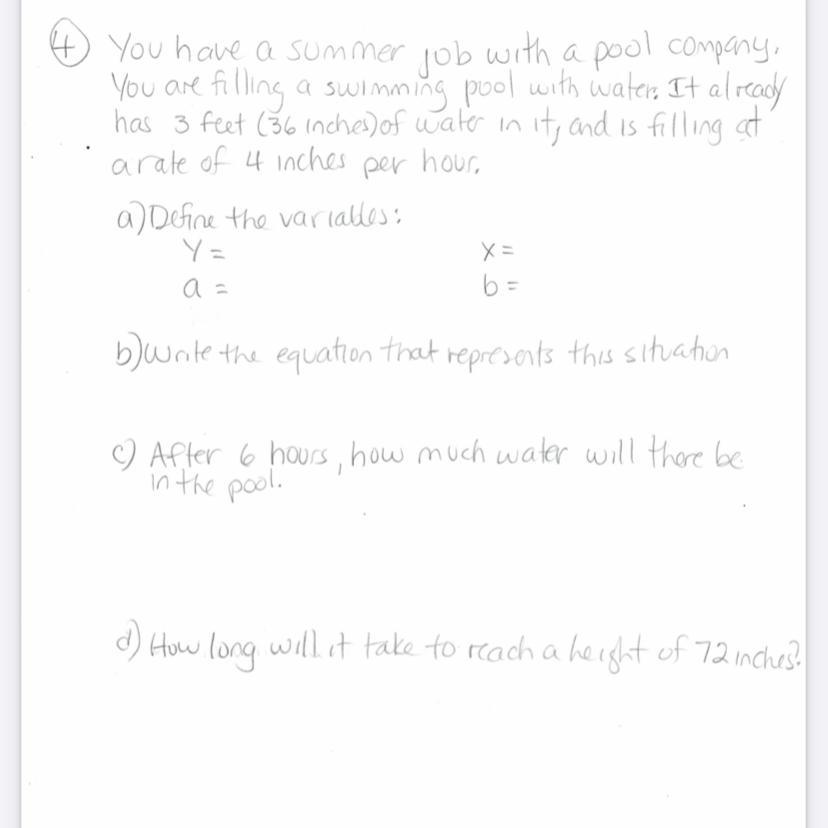 4 You have a summer job with a pool company.
You are filling a swimming pool with water. It already
has 3 feet (36 inches) of water in it, and is filling at
a rate of 4 inches per hour.
a) Define the variables:
Y = X =
a = b =
b) Write the equation that represents this situation
c) After 6 hours, how much water will there be
in the pool.
d) How long will it take to reach a height of 72 inches?